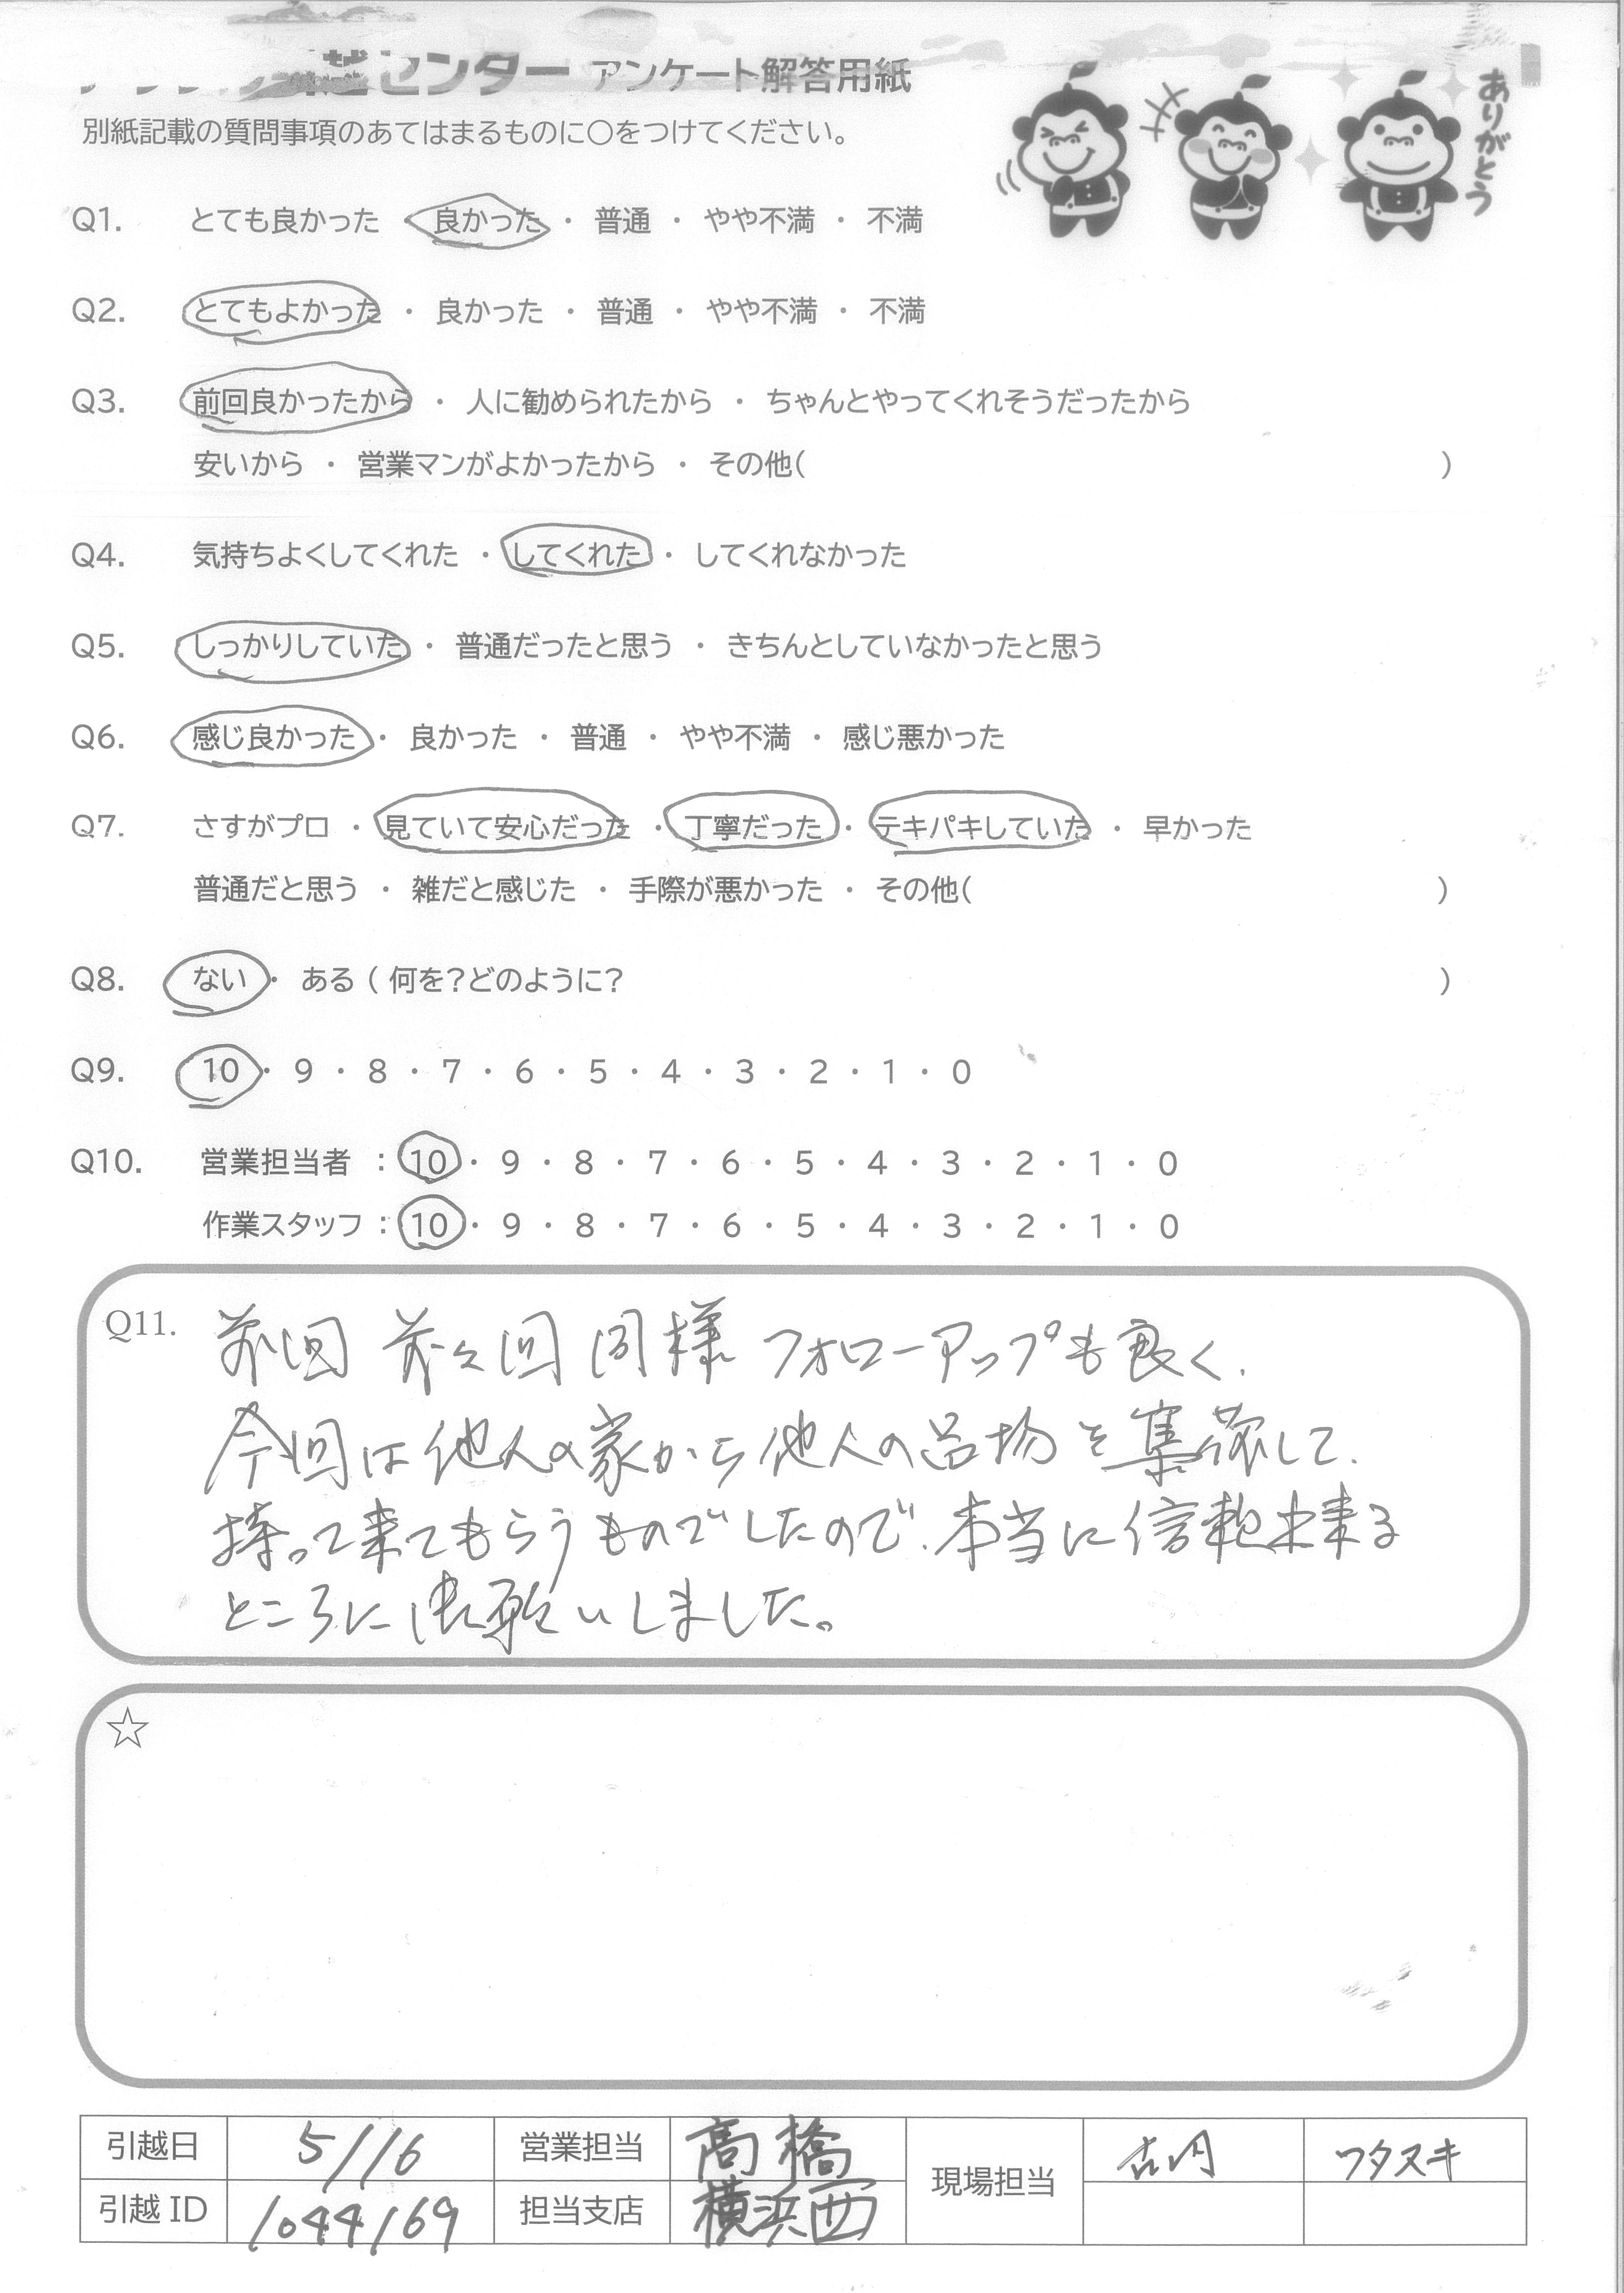 越センター アンケート解答用紙
ありがとう
別紙記載の質問事項のあてはまるものに○をつけてください。
Q1. とても良かった 良かった ・ 普通 ・ やや不満 ・ 不満
Q2. とてもよかった ・ 良かった ・ 普通 ・ やや不満 ・ 不満
Q3. 前回良かったから ・ 人に勧められたから ・ ちゃんとやってくれそうだったから
安いから ・ 営業マンがよかったから ・ その他( )
Q4. 気持ちよくしてくれた ・ してくれた ・ してくれなかった
Q5. しっかりしていた ・ 普通だったと思う ・ きちんとしていなかったと思う
Q6. 感じ良かった ・ 良かった ・ 普通 ・ やや不満 ・ 感じ悪かった
Q7. さすがプロ ・ 見ていて安心だった ・ 丁寧だった ・ テキパキしていた ・ 早かった
普通だと思う ・ 雑だと感じた ・ 手際が悪かった ・ その他( )
Q8. ない ・ ある ( 何を?どのように? )
Q9. 10 ・ 9 ・ 8 ・ 7 ・ 6 ・ 5 ・ 4 ・ 3 ・ 2 ・ 1 ・ 0
Q10. 営業担当者 : 10 ・ 9 ・ 8 ・ 7 ・ 6 ・ 5 ・ 4 ・ 3 ・ 2 ・ 1 ・ 0
作業スタッフ : 10 ・ 9 ・ 8 ・ 7 ・ 6 ・ 5 ・ 4 ・ 3 ・ 2 ・ 1 ・ 0
Q11. 前回 前々回 同様 フォローアップも良く、
今回は他人の家から他人の品物を集荷して、
持って来てもらうものでしたので、本当に信頼出来る
ところに御願いしました。
☆
引越日 5/16 営業担当 高橋 現場担当 ワタヌキ
引越 ID 1044169 担当支店 横浜西